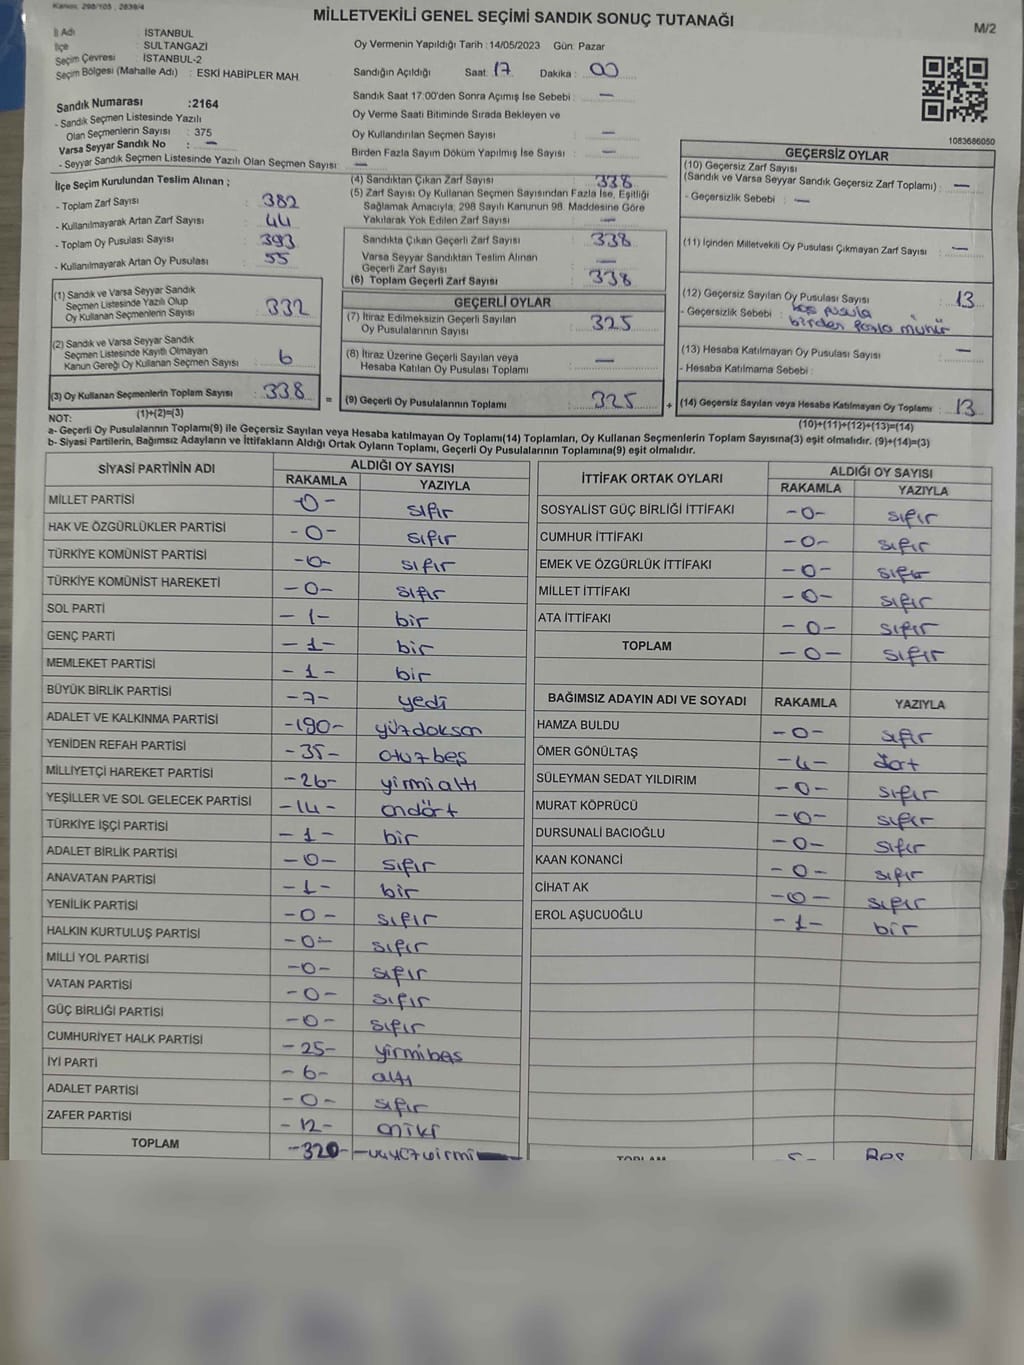 Kanun, 298/105, 2839/4
MİLLETVEKİLİ GENEL SEÇİMİ SANDIK SONUÇ TUTANAĞI
M/2
İl Adı : İSTANBUL
İlçe : SULTANGAZİ
Seçim Çevresi : İSTANBUL-2
Seçim Bölgesi (Mahalle Adı) : ESKİ HABİPLER MAH
Oy Vermenin Yapıldığı Tarih : 14/05/2023 Gün: Pazar
Sandığın Açıldığı Saat: 17 Dakika : 00
Sandık Saat 17:00'den Sonra Açımış İse Sebebi : —
Oy Verme Saati Bitiminde Sırada Bekleyen ve
Oy Kullandırılan Seçmen Sayısı : —
Birden Fazla Sayım Döküm Yapılmış İse Sayısı : —
Sandık Numarası :2164
- Sandık Seçmen Listesinde Yazılı
Olan Seçmenlerin Sayısı : 375
Varsa Seyyar Sandık No : —
- Seyyar Sandık Seçmen Listesinde Yazılı Olan Seçmen Sayısı : —
1083686050
İlçe Seçim Kurulundan Teslim Alınan ;
- Toplam Zarf Sayısı : 382
- Kullanılmayarak Artan Zarf Sayısı : 44
- Toplam Oy Pusulası Sayısı : 393
- Kullanılmayarak Artan Oy Pusulası : 55
(1) Sandık ve Varsa Seyyar Sandık
Seçmen Listesinde Yazılı Olup
Oy Kullanan Seçmenlerin Sayısı : 332
(2) Sandık ve Varsa Seyyar Sandık
Seçmen Listesinde Kayıtlı Olmayan
Kanun Gereği Oy Kullanan Seçmen Sayısı : 6
(3) Oy Kullanan Seçmenlerin Toplam Sayısı : 338
(1)+(2)=(3)
(4) Sandıktan Çıkan Zarf Sayısı : 338
(5) Zarf Sayısı Oy Kullanan Seçmen Sayısından Fazla İse, Eşitliği
Sağlamak Amacıyla, 298 Sayılı Kanunun 98. Maddesine Göre
Yakılarak Yok Edilen Zarf Sayısı : —
Sandıkta Çıkan Geçerli Zarf Sayısı : 338
Varsa Seyyar Sandıktan Teslim Alınan
Geçerli Zarf Sayısı : —
(6) Toplam Geçerli Zarf Sayısı : 338
GEÇERLİ OYLAR
(7) İtiraz Edilmeksizin Geçerli Sayılan
Oy Pusulalarının Sayısı : 325
(8) İtiraz Üzerine Geçerli Sayılan veya
Hesaba Katılan Oy Pusulası Toplamı : —
= (9) Geçerli Oy Pusulalarının Toplamı : 325
GEÇERSİZ OYLAR
(10) Geçersiz Zarf Sayısı
(Sandık ve Varsa Seyyar Sandık Geçersiz Zarf Toplamı) : —
- Geçersizlik Sebebi : —
(11) İçinden Milletvekili Oy Pusulası Çıkmayan Zarf Sayısı : —
(12) Geçersiz Sayılan Oy Pusulası Sayısı : 13
- Geçersizlik Sebebi : boş pusula
birden fazla mühür
(13) Hesaba Katılmayan Oy Pusulası Sayısı : —
- Hesaba Katılmama Sebebi :
+ (14) Geçersiz Sayılan veya Hesaba Katılmayan Oy Toplamı : 13
(10)+(11)+(12)+(13)=(14)
NOT:
a- Geçerli Oy Pusulalarının Toplamı(9) ile Geçersiz Sayılan veya Hesaba katılmayan Oy Toplamı(14) Toplamları, Oy Kullanan Seçmenlerin Toplam Sayısına(3) eşit olmalıdır. (9)+(14)=(3)
b- Siyasi Partilerin, Bağımsız Adayların ve İttifakların Aldığı Ortak Oyların Toplamı, Geçerli Oy Pusulalarının Toplamına(9) eşit olmalıdır.
SİYASİ PARTİNİN ADI ALDIĞI OY SAYISI
RAKAMLA YAZIYLA
MİLLET PARTİSİ -0- sıfır
HAK VE ÖZGÜRLÜKLER PARTİSİ -0- sıfır
TÜRKİYE KOMÜNİST PARTİSİ -0- sıfır
TÜRKİYE KOMÜNİST HAREKETİ -0- sıfır
SOL PARTİ -1- bir
GENÇ PARTİ -1- bir
MEMLEKET PARTİSİ -1- bir
BÜYÜK BİRLİK PARTİSİ -7- yedi
ADALET VE KALKINMA PARTİSİ -190- yüzdoksan
YENİDEN REFAH PARTİSİ -35- otuzbeş
MİLLİYETÇİ HAREKET PARTİSİ -26- yirmialtı
YEŞİLLER VE SOL GELECEK PARTİSİ -14- ondört
TÜRKİYE İŞÇİ PARTİSİ -1- bir
ADALET BİRLİK PARTİSİ -0- sıfır
ANAVATAN PARTİSİ -1- bir
YENİLİK PARTİSİ -0- sıfır
HALKIN KURTULUŞ PARTİSİ -0- sıfır
MİLLİ YOL PARTİSİ -0- sıfır
VATAN PARTİSİ -0- sıfır
GÜÇ BİRLİĞİ PARTİSİ -0- sıfır
CUMHURİYET HALK PARTİSİ -25- yirmibeş
İYİ PARTİ -6- altı
ADALET PARTİSİ -0- sıfır
ZAFER PARTİSİ -12- oniki
TOPLAM -320- -üçyüzyirmi
İTTİFAK ORTAK OYLARI ALDIĞI OY SAYISI
RAKAMLA YAZIYLA
SOSYALİST GÜÇ BİRLİĞİ İTTİFAKI -0- sıfır
CUMHUR İTTİFAKI -0- sıfır
EMEK VE ÖZGÜRLÜK İTTİFAKI -0- sıfır
MİLLET İTTİFAKI -0- sıfır
ATA İTTİFAKI -0- sıfır
TOPLAM -0- sıfır
BAĞIMSIZ ADAYIN ADI VE SOYADI RAKAMLA YAZIYLA
HAMZA BULDU -0- sıfır
ÖMER GÖNÜLTAŞ -4- dört
SÜLEYMAN SEDAT YILDIRIM -0- sıfır
MURAT KÖPRÜCÜ -0- sıfır
DURSUNALİ BACIOĞLU -0- sıfır
KAAN KONANCİ -0- sıfır
CİHAT AK -0- sıfır
EROL AŞUCUOĞLU -1- bir
TOPLAM 5- Beş